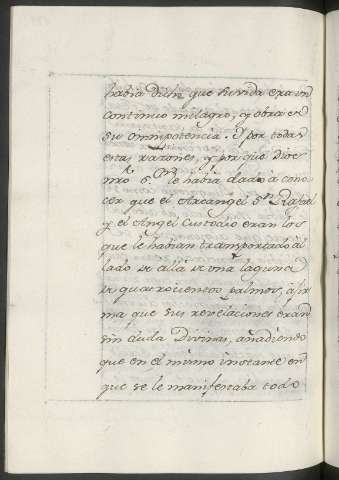 habia dicho que su vida era un
continuo milagro, y obra de
su omnipotencia. Y por todas
estas razones, y porque Dios
nrô. S.ᵒʳ le habia dado à cono
cer que el Arcangel S.ⁿ Rafael
y el Angel Custodio eran los
que le habian transportado al
lado de allà de una laguna
de quatrocientos palmos, afir
ma que sus revelaciones eran
sin duda Divinas, añadiendo
que en el mismo instante en
que se le manifestaba todo